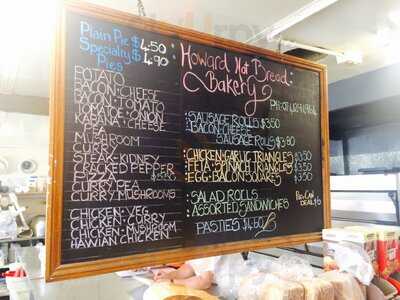 Plain Pie $4.50
Specialty $4.90
Pies
POTATO
BACON·CHEESE
BACON·TOMATO
TOMATO·ONION
KABANA·CHEESE
PEA
MUSHROOM
CURRY
STEAK·KIDNEY
CRACKED PEPPER
PIZZA
CURRY PEA
CURRY MUSHROOMS
CHICKEN·VEG
CHICKEN·CURRY
CHICKEN·MUSHROOM
HAWIAN CHICKEN
Howard Hot Bread
Bakery
SAUSAGE ROLLS $3.50
BACON·CHEESE
SAUSAGE ROLLS $3.80
CHICKEN·GARLIC TRIANGLES $3.50
FETA·SPINACH TRIANGLES $3.50
EGG·BACON SQUARES $3.50
SALAD ROLLS
ASSORTED SANDWICHES
PASTIES $4.50
DEAL